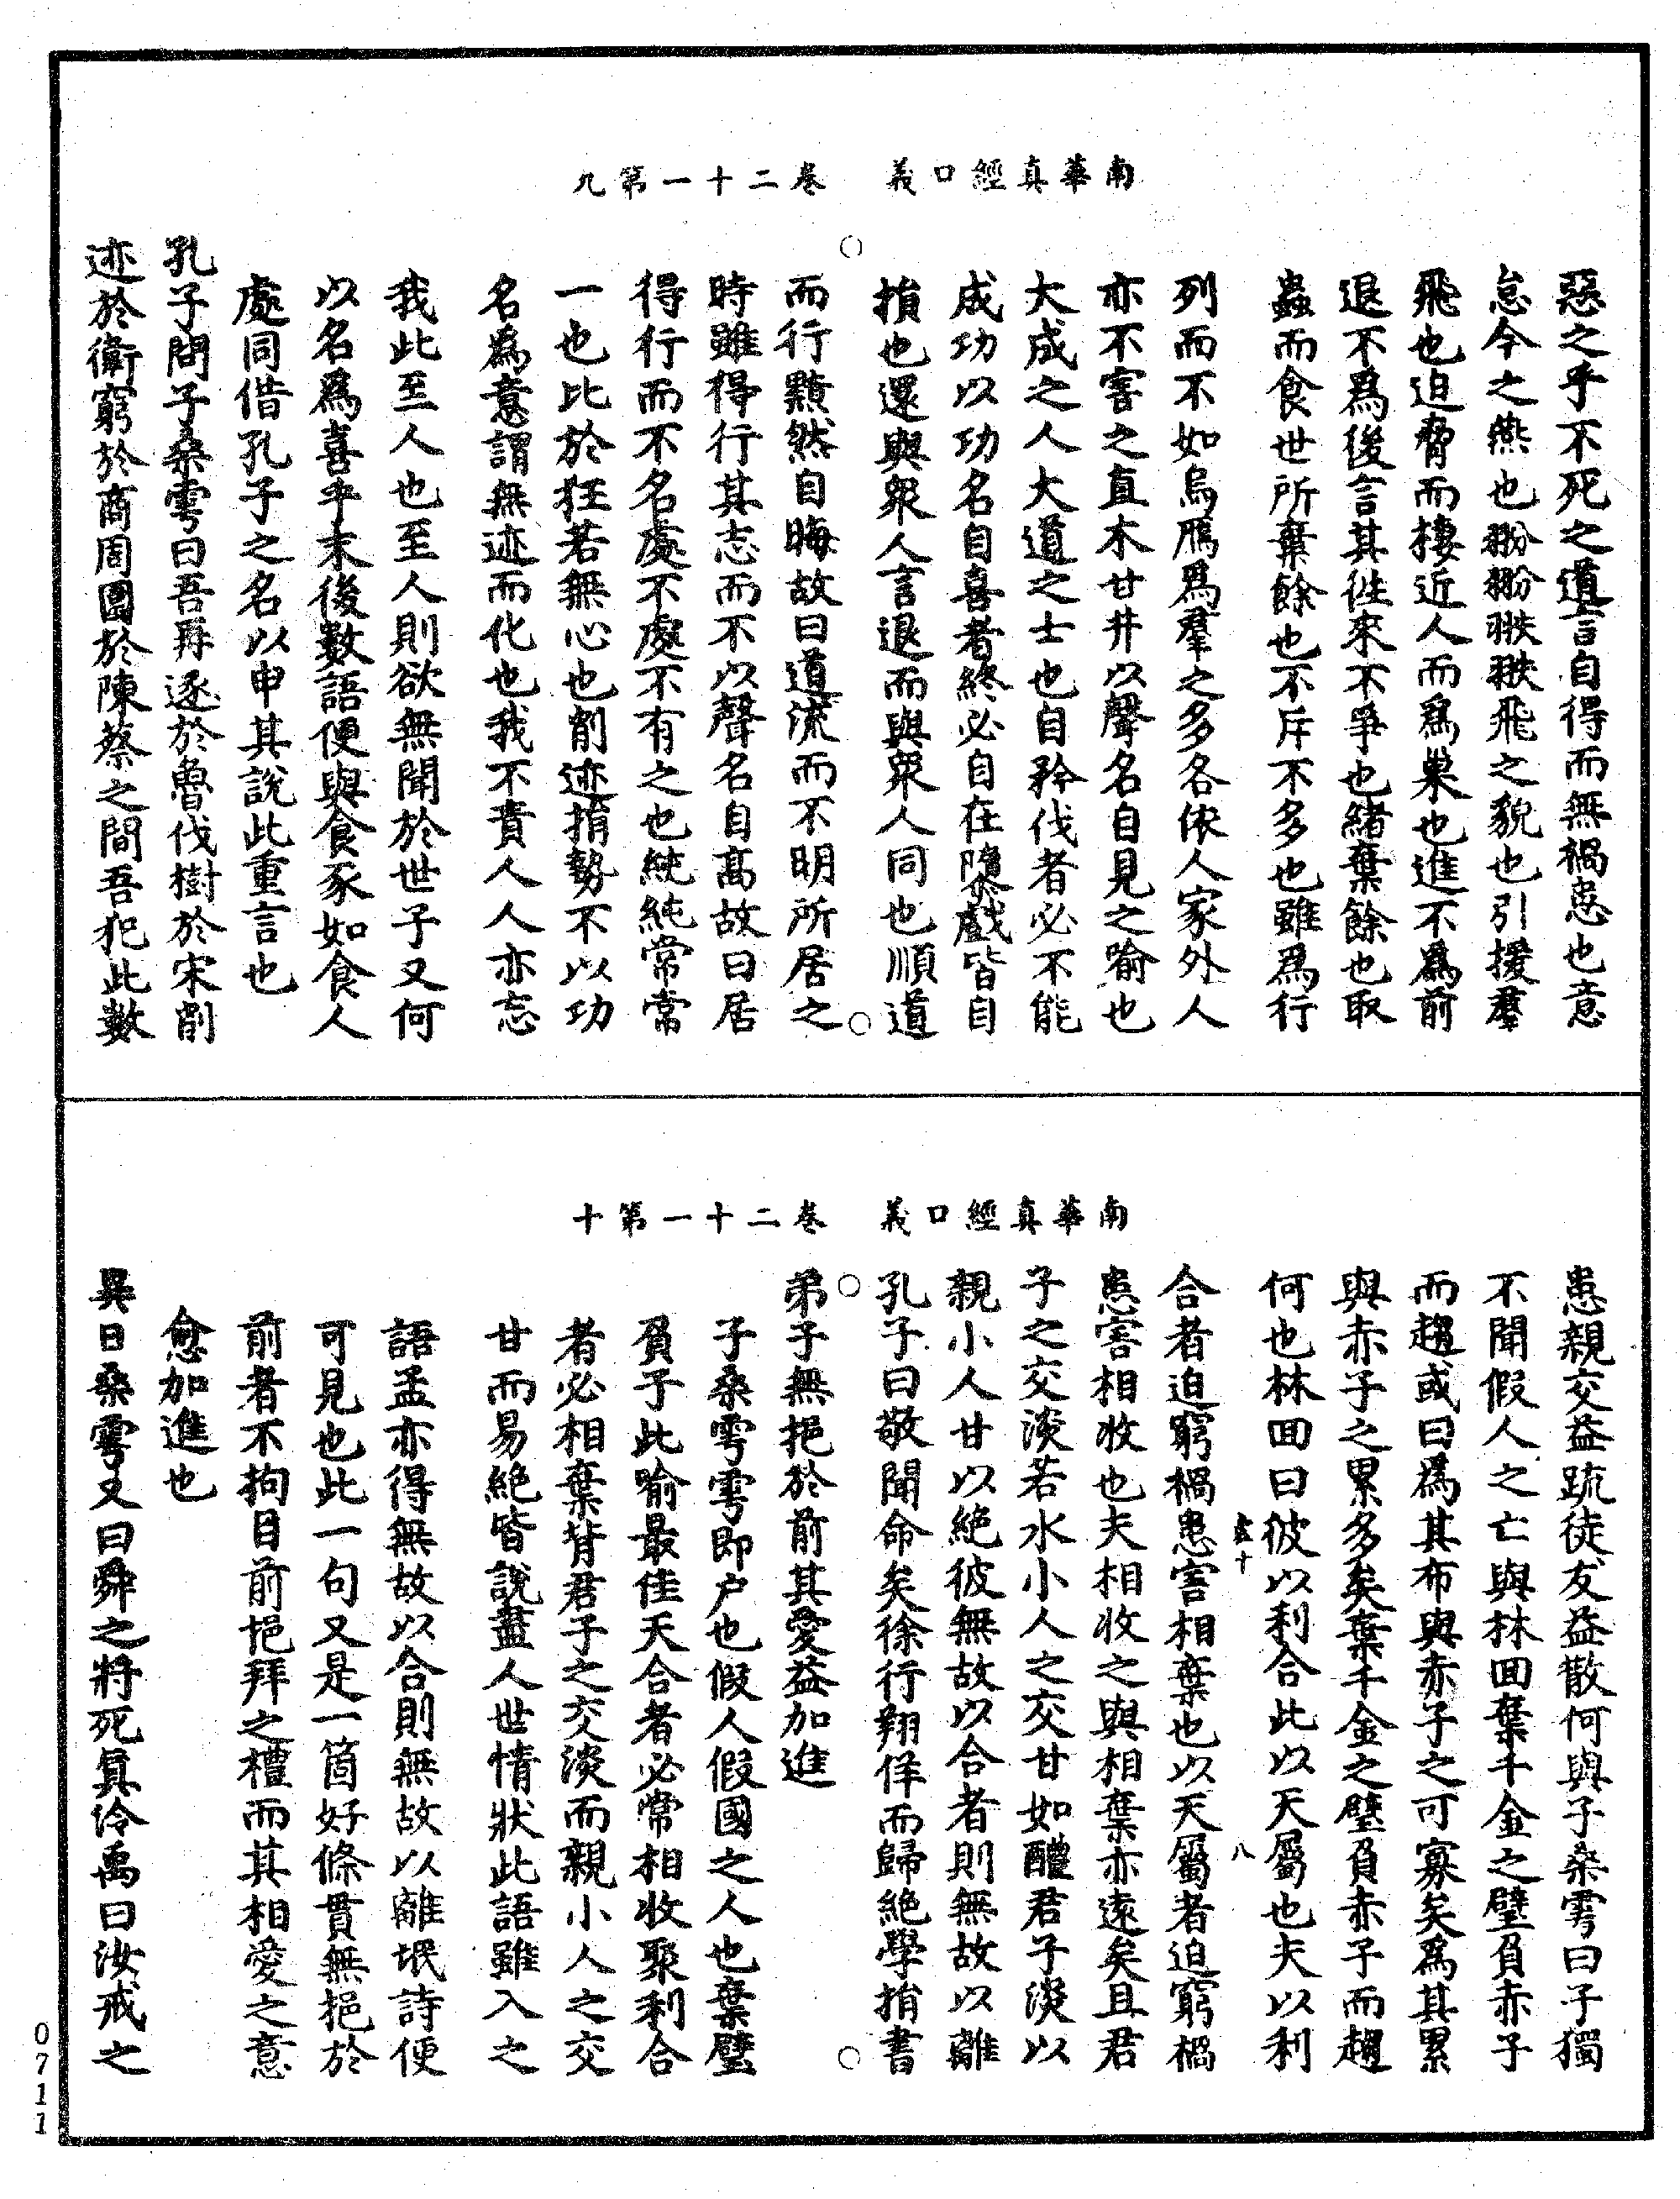 南華真經口義　卷二十一第九
惡之乎不死之道言自得而無禍患也意
怠今之燕也翂翂翐翐飛之貌也引援羣
飛也迫脅而棲近人而爲巢也進不爲前
退不爲後言其徃來不爭也緒棄餘也取
蟲而食世所棄餘也不斥不多也雖爲行
列而不如烏鴈爲羣之多各依人家外人
亦不害之直木甘井以聲名自見之喻也
大成之人大道之士也自矜伐者必不能
成功以功名自喜者終必自在隳戲皆自
損也還與衆人言退而與衆人同也順道
而行黯然自晦故曰道流而不明所居之
時雖得行其志而不以聲名自高故曰居
得行而不名處不處不有之也純純常常
一也比於狂若無心也削迹捐勢不以功
名爲意謂無迹而化也我不責人人亦忘
我此至人也至人則欲無聞於世子又何
以名爲喜乎末後數語便與食豕如食人
處同借孔子之名以申其說此重言也
孔子問子桑雽曰吾再逐於魯伐樹於宋削
迹於衛窮於商周圍於陳蔡之間吾犯此數
南華真經口義　卷二十一第十
患親交益疏徒友益散何與子桑雽曰子獨
不聞假人之亡與林回棄千金之璧負赤子
而趨或曰爲其布與赤子之可寡矣爲其累
與赤子之累多矣棄千金之璧負赤子而趨
何也林回曰彼以利合此以天屬也夫以利
十　八
合者迫窮禍患害相棄也以天屬者迫窮禍
患害相收也夫相收之與相棄亦遠矣且君
子之交淡若水小人之交甘如醴君子淡以
親小人甘以絕彼無故以合者則無故以離
孔子曰敬聞命矣徐行翔佯而歸絕學捐書
弟子無挹於前其愛益加進
子桑雽雽即户也假人假國之人也棄璧
負子此喻最佳天合者必常相收聚利合
者必相棄背君子之交淡而親小人之交
甘而易絕皆說盡人世情狀此語雖入之
語孟亦得無故以合則無故以離氓詩便
可見也此一句又是一箇好條貫無挹於
前者不拘目前挹拜之禮而其相愛之意
愈加進也
異日桑雽又曰舜之將死眞泠禹曰汝戒之
0711